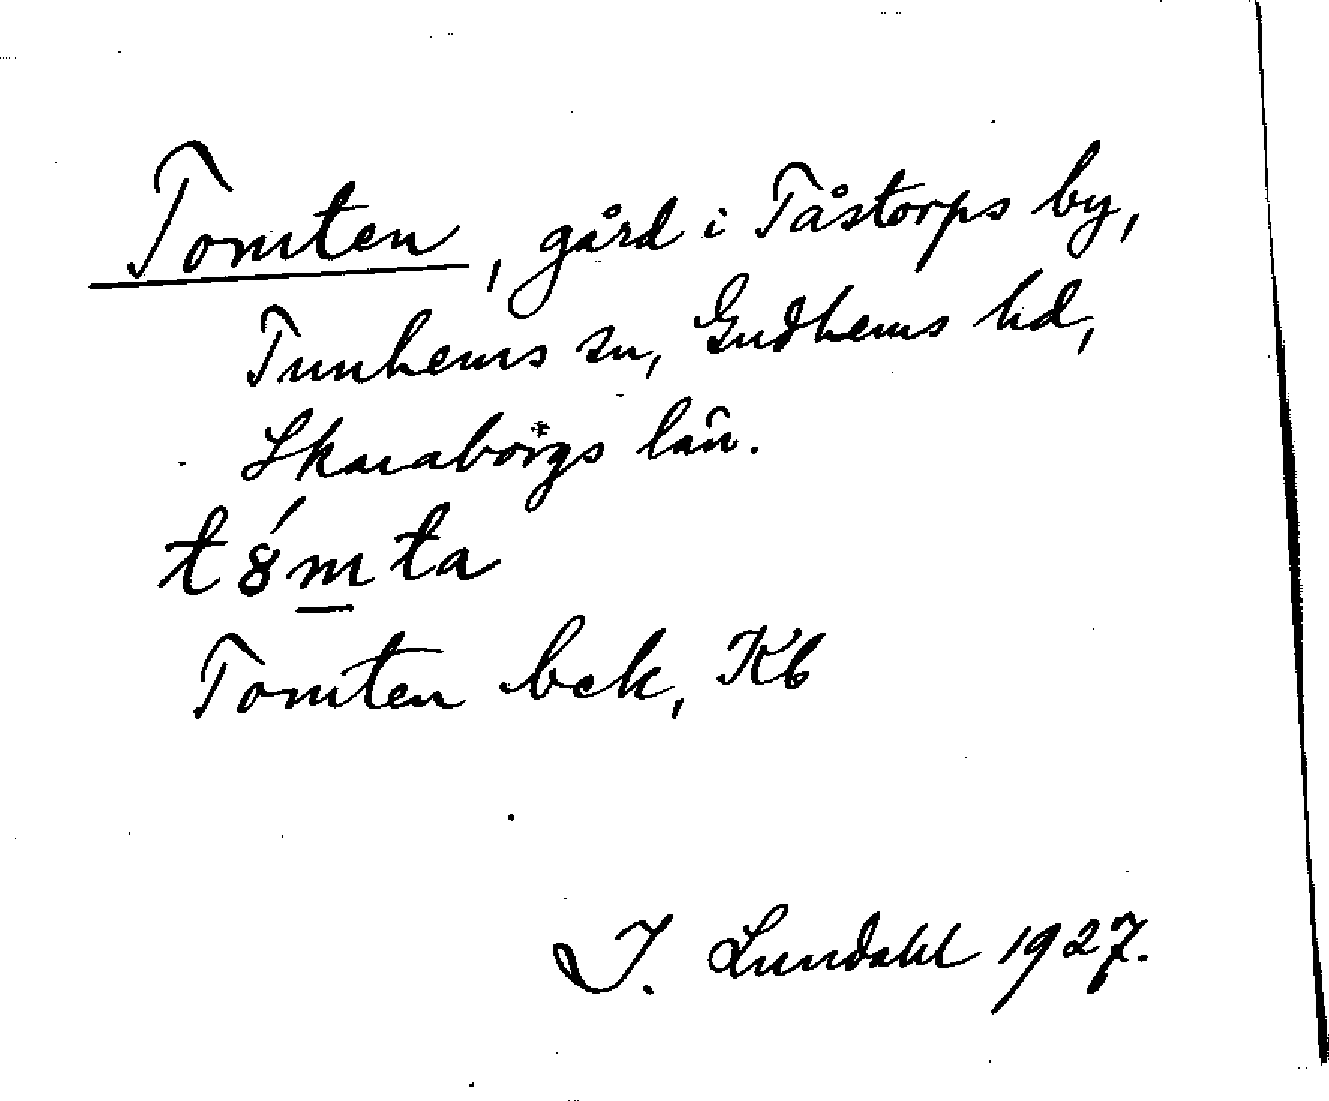 Tomten, gård i Tåstorps by,
Tunhems sn, Gudhems hd,
Skaraborgs län.
t8́m̲ta
Tomten bek, Kb
I. Lundahl 1927.